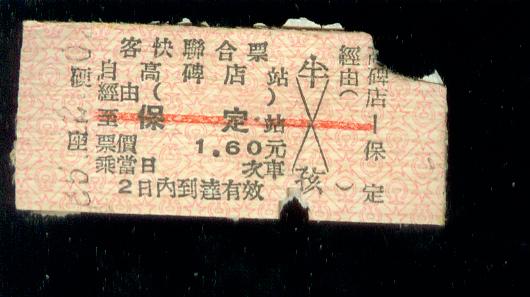 客快聯合票
自高碑店站
經由( )
至保定站
票價1.60元
乘當日 次車
2日內到達有效
硬座
半
孩
碑店—保定
經由( )